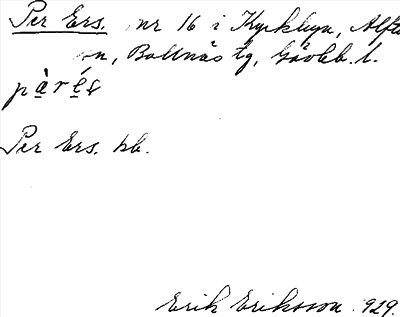 Per Ers. nr 16 i Kyrkbyn, Alfta
sn, Bollnäs tg, Gävleb. l.
pàrés
Per Ers. hb.
Erik Eriksson 1929.